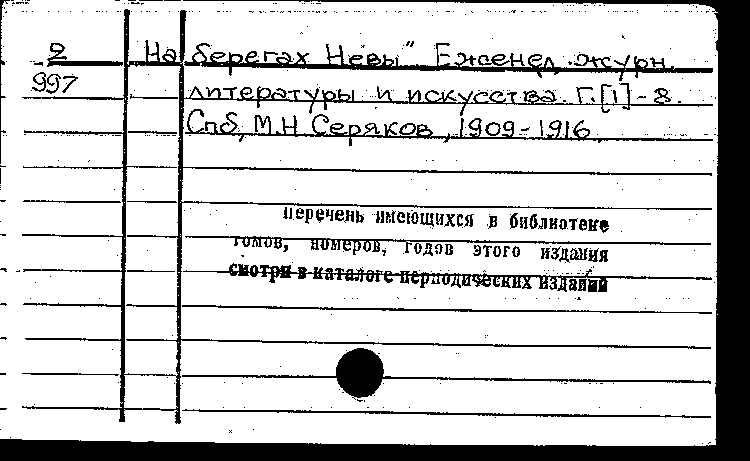 2 На берегах Невы" Еженед. журн.
997 литературы и искусства. Г. [1]-8.
Спб, М.Н Серяков, 1909-1916.
перечень имеющихся в библиотеке
томов, номеров, годов этого издания
смотри в каталоге периодических изданий